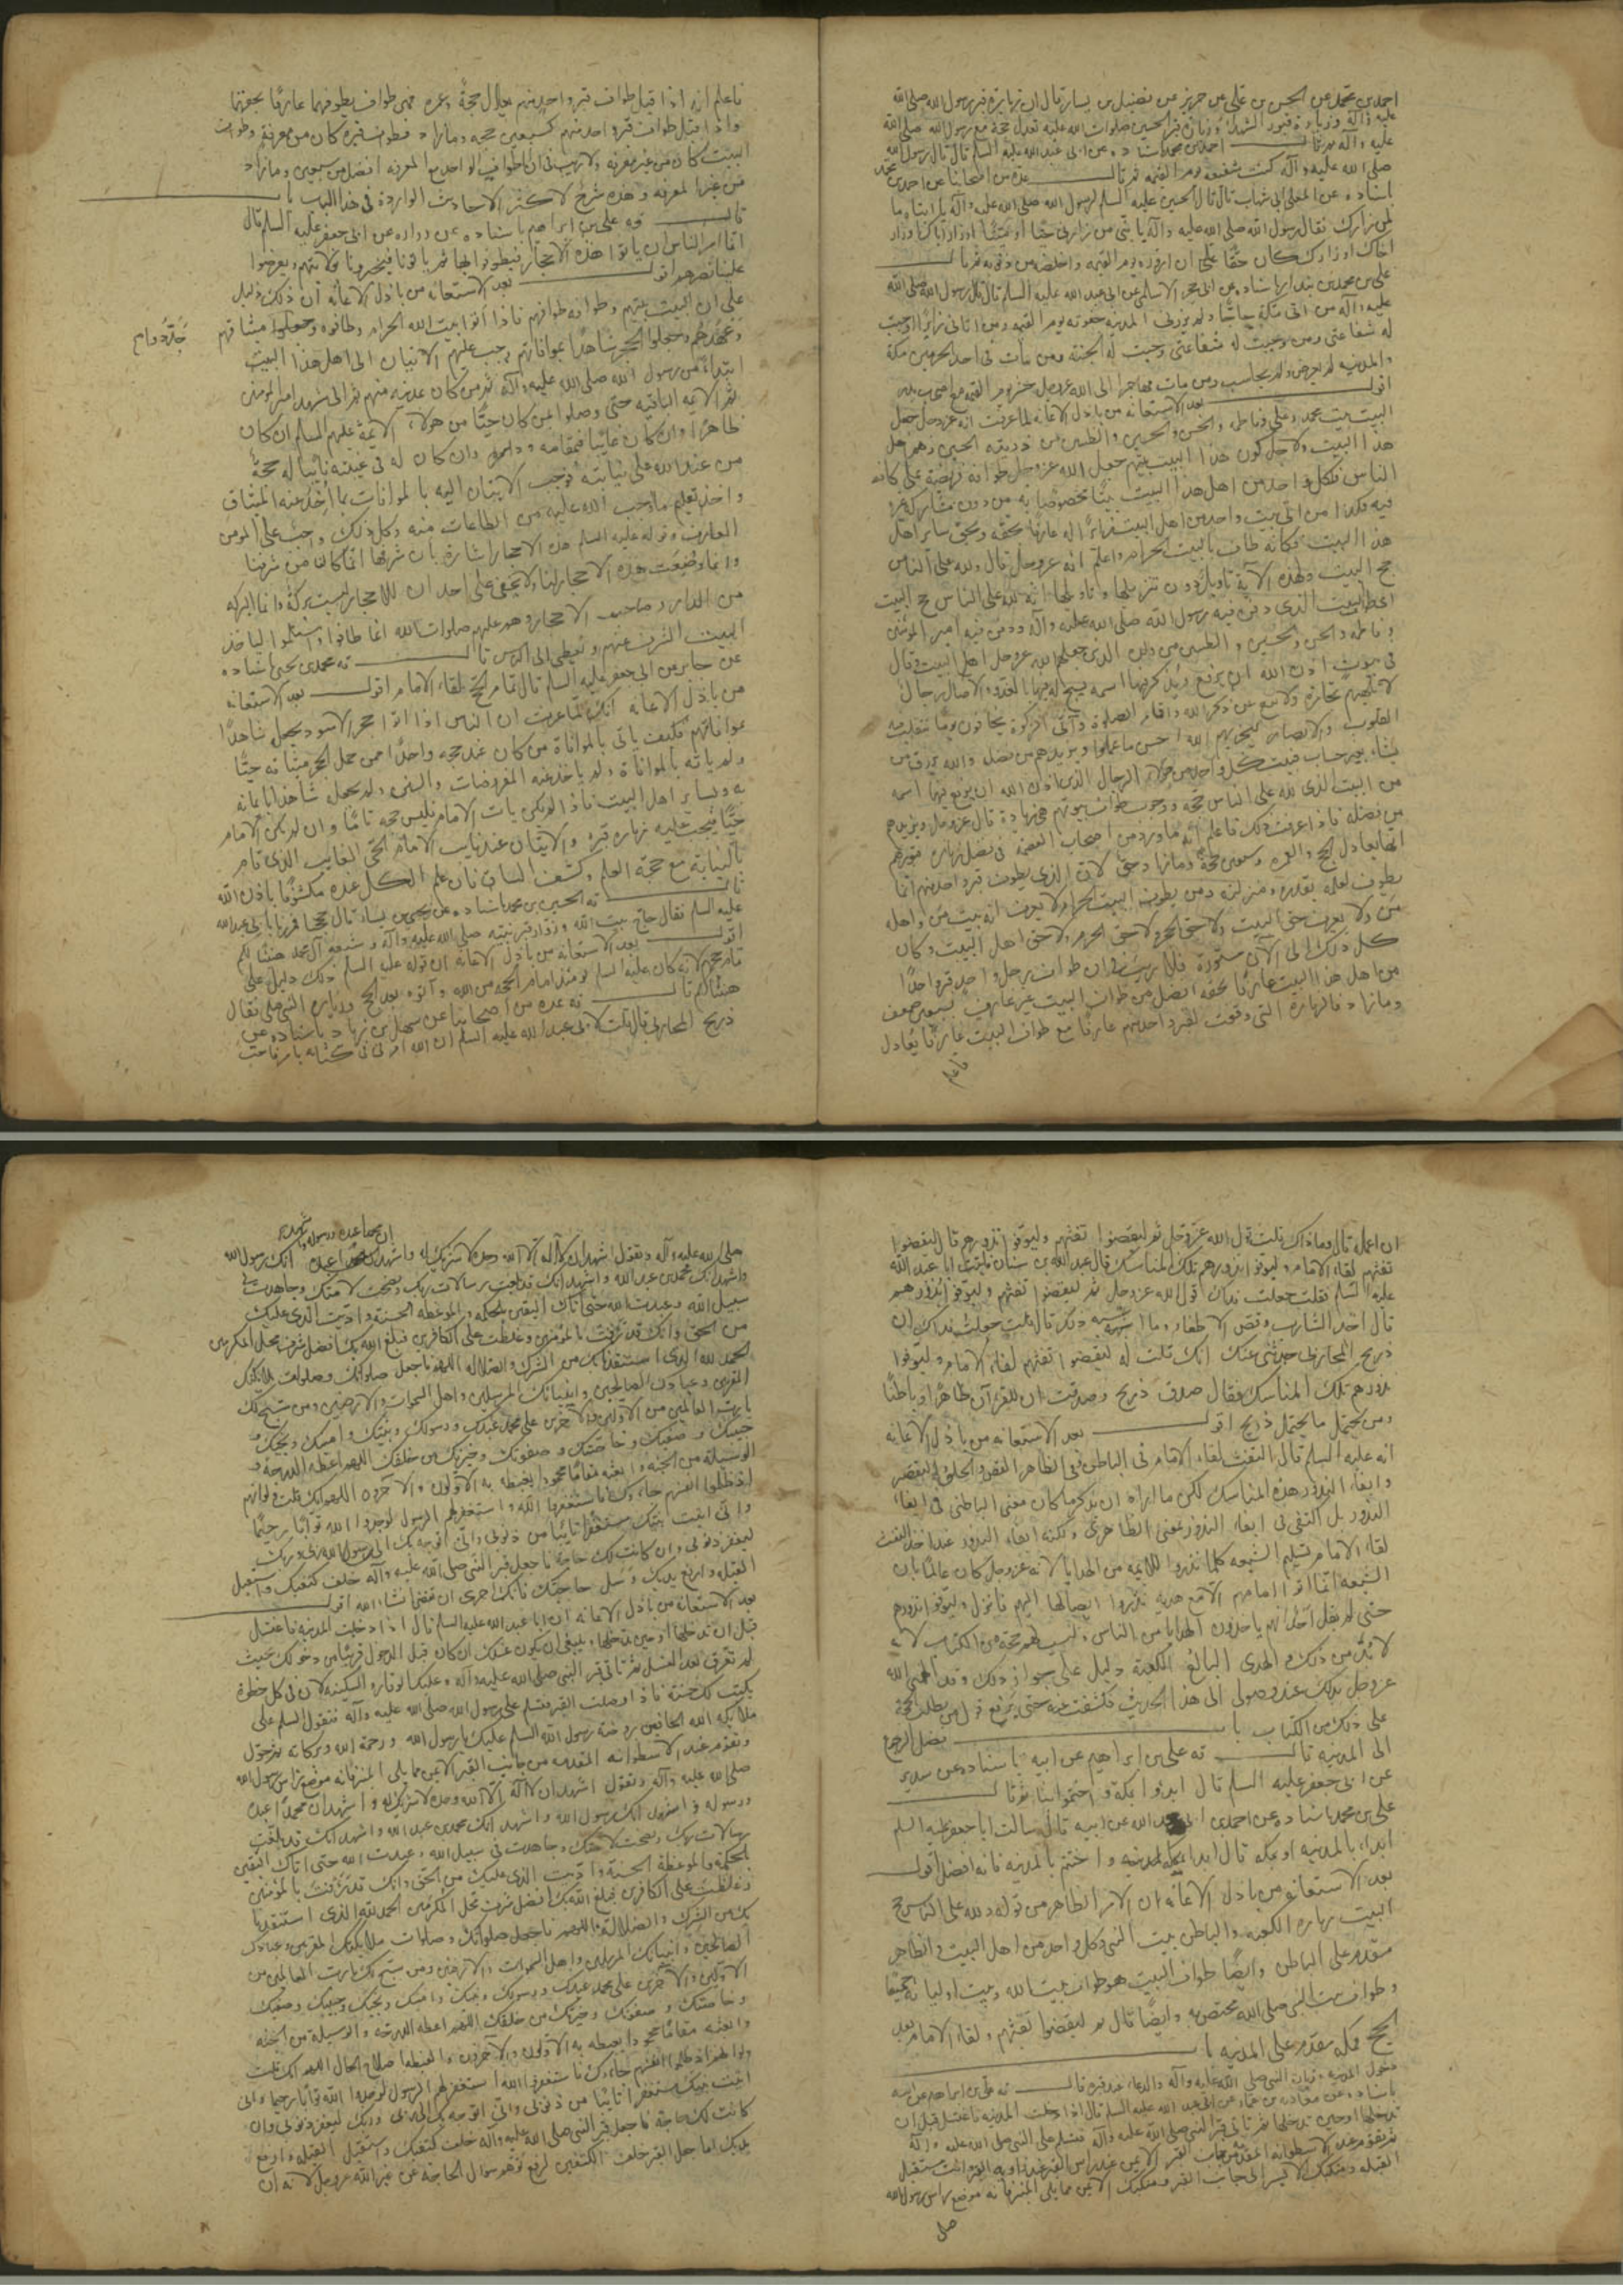 احمد بن محمد عن الحسن بن علي عن حريز عن فضيل بن يسار قال ان زيارة قبر رسول الله صلى الله
عليه وآله وزيارة قبور الشهداء وزيارة قبر الحسين صلوات الله عليه تعدل حجة مع رسول الله صلى الله
عليه وآله ثم قال احمد بن محمد باسناده عن ابي عبد الله عليه السلم قال قال رسول الله
صلى الله عليه وآله كنت شفيعه يوم القيمة ثم قال عدة من اصحابنا عن احمد بن محمد
باسناده عن المعلى ابي شهاب قال قال الحسين عليه السلم لرسول الله صلى الله عليه وآله يا ابتاه ما
لمن زارك فقال رسول الله صلى الله عليه وآله يا بني من زارني حيّا او ميّتا او زار اباك او زار
اخاك او زارك كان حقّا عليّ ان ازوره يوم القيمة واخلصه من ذنوبه ثم قال
علي بن محمد بن بندار باسناده عن ابي حجر الاسلمي عن ابي عبد الله عليه السلم قال قال رسول الله صلى الله
عليه وآله من اتى مكة حاجّا ولم يزرني الى المدينة جفوته يوم القيمة ومن اتاني زائرا وجبت
له شفاعتي ومن وجبت له شفاعتي وجبت له الجنة ومن مات في احد الحرمين مكة
والمدينة لم يعرض ولم يحاسب ومن مات مهاجرا الى الله عز وجل حشر يوم القيمة مع اصحاب بدر
اقول بعد الاستعانة من باذل الاعانة لما عرفت انه عز وجل جعل
البيت بيت محمد وعلي وفاطمة والحسن والحسين والطيبين من ذرية الحسين وهم اهل
هذا البيت ولاجل كون هذا البيت بيتهم جعل الله عز وجل طوافه فريضة على كافة
الناس فكل واحد من اهل هذا البيت بيتا مخصوصا به من دون مشاركة غيره
فيه فكذا من اتى بيت واحد من اهل البيت زائرا له عارفا بحقه وبحق ساير اهل
هذا البيت فكانه طاف بالبيت الحرام واعلم انه عز وجل قال ولله على الناس
حج البيت ولهذه الآية تاويل دون تنزيلها وتاويلها انه لله على الناس حج البيت
اعظم البيت الذي دفن فيه رسول الله صلى الله عليه وآله ودفن فيه امير المؤمنين
وفاطمة والحسن والحسين والطيبين من ذرية الذين جعلهم الله عز وجل اهل البيت وقال
في بيوت اذن الله ان ترفع ويذكر فيها اسمه يسبح له فيها بالغدو والآصال رجال
لا تلهيهم تجارة ولا بيع عن ذكر الله واقام الصلوة وايتاء الزكوة يخافون يوما تتقلب فيه
القلوب والابصار ليجزيهم الله احسن ما عملوا ويزيدهم من فضله والله يرزق من
يشاء بغير حساب فبيت كل واحد من هؤلاء الرجال الذين اذن الله ان يرفع فيها اسمه
من البيت الذي لله على الناس حجه ووجوب طواف بيوتهم هي زيادة قال عز وجل ويزيدهم
من فضله فاذا عرفت ذلك فاعلم انه ما ورد من اصحاب العصمة في فضل زيارة قبورهم
انها يعادل الحج والعمرة وسبعين حجة وما زاد حق لان الذي يطوف قبر واحد منهم انما
يطوف لعلمه بقدره ومنزلته ومن يطوف البيت الحرام ولا يعرف انه بيت من واهله
من ولا يعرف حق البيت ولا حق الحجر ولا حق الحرم ولا حق اهل البيت وكان
كل ذلك الى الآن مستورة فلا ريب في ان طواف رجل واحد قبر واحد
من اهل هذا البيت عارفا بحقه افضل من طواف البيت غير عارف بسبعين ضعف
وما زاد فالزيارة التي وقعت لقبر احد منهم عارفا مع طواف البيت عارفا يعادل
فاعلم
فاعلم انه اذا قيل طواف قبر واحد منهم يعادل حجة وعمرة فهي طواف يطوفهما عارفا بحقهما
واذا قيل طواف قبر واحد منهم كسبعين حجه وما زاد فطواف قبره كان من معرفة وطواف
البيت كان من غير معرفة ولا ريب في ان طواف الواحد مع المعرفة افضل من سبعين وما زاد
من غير المعرفة وهذه شرح لاكثر الاحاديث الواردة في هذا الباب باب
قال ثه علي بن ابراهيم باسناده عن زرارة عن ابي جعفر عليه السلم قال
انما امر الناس ان ياتوا هذه الاحجار فيطوفوا بها ثم ياتونا فيخبرونا بولايتهم ويعرضوا
علينا نصرهم اقول بعد الاستعانة من باذل الاعانة ان ذلك دليل
على ان البيت بيتهم وطوافه طوافهم فاذا اتوا بيت الله الحرام وطافوه وجعلوا ميثاقهم
وعهدهم وجعلوا الحجر شاهدا بموافاتهم وجب عليهم الاتيان الى اهل هذا البيت
ابتداء من رسول الله صلى الله عليه وآله ثم من كان بمدينة منهم ثم الى مشهد امير المؤمنين
ثم الائمة الباقية حتى وصلوا لمن كان حيّا من هؤلاء الائمة عليهم السلم ان كان
ظاهرا وان كان غائبا فمقامه وان كان له في غيبته نائبا له حجة
من عند الله على نيابته فوجب الاتيان اليه بالموافاة بما اخذ عنه الميثاق
واخذ تعليم ما وجب الله عليه من الطاعات منه وكل ذلك واجب على المؤمن
العارف وقوله عليه السلم هذه الاحجار اشارة بان شرفها انما كان من شرفنا
وانما وضعت هذه الاحجار لنا لا يخفى على احد ان للاحجار ليست بركة وانما البركة
من الدار وصاحب الاحجار وهم عليهم صلوات الله انما طافوا واستلموا لياخذ
البيت الشرف عنهم ويعطى الى الناس قال ثه محمد بن يحيى باسناده
عن جابر عن ابي جعفر عليه السلم قال تمام الحج لقاء الامام اقول بعد الاستعانة
من باذل الاعانة انك لما عرفت ان الناس اذا اتوا حجر الاسود يجعل شاهدا
بموافاتهم فكيف ياتي بالموافاة من كان عنده حجه واحدا ممن حمل الحجر ميثاقه حيّا
ولم ياته بالموافاة ولم ياخذ عنه المفروضات والسنن ولم يجعل شاهدا بايمانه
به وبساير اهل البيت فاذا لم يكن يات الامام فليس حجه تاما وان لم يكن الامام
حيّا فيجب عليه زيارة قبره والاتيان عند نايب الامام الحي الغايب الذي قام
بالنيابة مع حجة العلم وكشف الساق فان علم الكل عنده مكشوفا باذن الله
قال ثه الحسين بن محمد باسناده عن يحيى بن يسار قال حججنا فمررنا بابي عبد الله
عليه السلم فقال حاج بيت الله وزوار قبر نبيه صلى الله عليه وآله وشيعة آل محمد هنيئا لكم
اقول بعد الاستعانة من باذل الاعانة ان قوله عليه السلم ذلك دليل على
تمام حجهم لانه كان عليه السلم يومئذ امام الحجة من الله وآتوه بعد الحج وزيارة النبي صلى فقال
هنيئا لكم قال ثه عدة من اصحابنا عن سهل بن زياد باسناده عن
ذريح المحاربي قال قلت لابي عبد الله عليه السلم ان الله امرني في كتابه بامر فاحب
ان اعمله قال وما ذاك قلت قول الله عز وجل ثم ليقضوا تفثهم وليوفوا نذورهم قال ليقضوا
تفثهم لقاء الامام وليوفوا نذورهم تلك المناسك قال عبد الله بن سنان فاتيت ابا عبد الله
عليه السلم فقلت جعلت فداك قول الله عز وجل ثم ليقضوا تفثهم وليوفوا نذورهم
قال اخذ الشارب وقص الاظفار وما اشبه ذلك قال قلت جعلت فداك ان
ذريح المحاربي حدثني عنك انك قلت له ليقضوا تفثهم لقاء الامام وليوفوا
نذورهم تلك المناسك فقال صدق ذريح وصدقت ان للقرآن ظاهرا وباطنا
ومن يحتمل ما يحتمل ذريح اقول بعد الاستعانة من باذل الاعانة
انه عليه السلم قال التفث لقاء الامام في الباطن وفي الظاهر القص والحلق والتقصير
وايفاء النذور هذه المناسك لكن ما اراه ان يذكر ما كان معنى الباطن في ايفاء
النذور بل اكتفى في ايفاء النذور بمعنى الظاهري ولكنه ايفاء النذور عند اخذ التفث
لقاء الامام تسليم الشيعة كلما نذروا للائمة من الهدايا لانه عز وجل كان عالما بان
الشيعة انما اتوا امامهم الا مع هدية نذروا ايصالها اليهم فانزل وليوفوا نذورهم
حتى لم يقل احد انهم ياخذون الهدايا من الناس وليست لهم حجة من الكتاب لانه
لا بدّ من ذلك والهدى البالغ الكعبة دليل على جواز ذلك وقد الهمني الله
عز وجل بذلك عند وصولي الى هذا الحديث فكشفت عنه حتى يرفع قول من يطلب الحجة
على ذلك من الكتاب باب فضل الرجوع
الى المدينة قال ثه علي بن ابراهيم عن ابيه باسناده عن سدير
عن ابي جعفر عليه السلم قال ابدؤا بمكة واختموا بنا ثم قال
علي بن محمد باسناده عن احمد بن ابي عبد الله عن ابيه قال سالت ابا جعفر عليه السلم
ابداء بالمدينة او بمكة قال ابدا بمكة واختم بالمدينة فانه افضل اقول
بعد الاستعانة من باذل الاعانة ان الامر الظاهر من قوله ولله على الناس حج
البيت زيارة الكعبة والباطن بيت النبي وكل واحد من اهل البيت والظاهر
مقدم على الباطن وايضا طواف البيت هو طواف بيت الله وبيت اوليائه جميعا
وطواف بيت النبي صلى الله مختص به وايضا قال ثم ليقضوا تفثهم ولقاء الامام بعد
الحج فمكة مقدم على المدينة باب
دخول المدينة وزيارة النبي صلى الله عليه وآله والدعاء عند قبره قال ثه علي بن ابراهيم عن ابيه
باسناده عن معوية بن عمار عن ابي عبد الله عليه السلم قال اذا دخلت المدينة فاغتسل قبل ان
تدخلها او حين تدخلها ثم تاتي قبر النبي صلى الله عليه وآله فتسلم على النبي صلى الله عليه وآله
ثم تقوم عند الاسطوانة المقدمة من جانب القبر الايمن عند راس القبر عند زاوية القبر وانت مستقبل
القبلة ومنكبك الايسر الى جانب القبر ومنكبك الايمن مما يلي المنبر فانه موضع راس رسول الله
صلى
ان محمدا عبده ورسوله واشهد
صلى الله عليه وآله وتقول اشهد ان لا اله الا الله وحده لا شريك له واشهد انك رسول الله
واشهد انك محمد بن عبد الله واشهد انك قد بلغت رسالات ربك ونصحت لامتك وجاهدت في
سبيل الله وعبدت الله حتى اتاك اليقين بالحكمة والموعظة الحسنة واديت الذي عليك
من الحق وانك قد رؤفت بالمؤمنين وغلظت على الكافرين فبلغ الله بك افضل شرف محل المكرمين
الحمد لله الذي استنقذنا بك من الشرك والضلالة اللهم فاجعل صلواتك وصلوات ملائكتك
المقربين وعبادك الصالحين وانبيائك المرسلين واهل السموات والارضين ومن سبح لك
يا رب العالمين من الاولين والآخرين على محمد عبدك ورسولك ونبيك وامينك ونجيك و
حبيبك وصفيك وخاصتك وصفوتك وخيرتك من خلقك اللهم اعطه الدرجة و
الوسيلة من الجنة وابعثه مقاما محمودا يغبطه به الاولون والآخرون اللهم انك قلت ولو انهم
اذ ظلموا انفسهم جاؤك فاستغفروا الله واستغفر لهم الرسول لوجدوا الله توابا رحيما
واني اتيت نبيك مستغفرا تائبا من ذنوبي واني اتوجه بك الى الله ربي وربك
ليغفر ذنوبي وان كانت لك حاجة فاجعل قبر النبي صلى الله عليه وآله خلف كتفيك واستقبل
القبلة وارفع يديك وسل حاجتك فانك احرى ان تقضى ان شاء الله اقول
بعد الاستعانة من باذل الاعانة ان ابا عبد الله عليه السلم قال اذا دخلت المدينة فاغتسل
قبل ان تدخلها او حين تدخلها وينبغي ان يكون غسلك ان كان قبل الدخول قريبا من دخولك بحيث
لم تعرق بعد الغسل ثم تاتي قبر النبي صلى الله عليه وآله وعليك الوقار والسكينة لان في كل خطوة
يكتب لك حسنة فاذا وصلت القبر فتسلم على رسول الله صلى الله عليه وآله فتقول السلم على
ملائكة الله الحافين روضة رسول الله السلم عليك يا رسول الله ورحمة الله وبركاته ثم حول
وتقوم عند الاسطوانة المقدمة من جانب القبر الايمن مما يلي المنبر فانه موضع راس رسول الله
صلى الله عليه وآله وتقول اشهد ان لا اله الا الله وحده لا شريك له واشهد ان محمدا عبده
ورسوله واشهد انك رسول الله واشهد انك محمد بن عبد الله واشهد انك قد بلغت
رسالات ربك ونصحت لامتك وجاهدت في سبيل الله وعبدت الله حتى اتاك اليقين
بالحكمة والموعظة الحسنة واديت الذي عليك من الحق وانك قد رؤفت بالمؤمنين
وغلظت على الكافرين فبلغ الله بك افضل شرف محل المكرمين الحمد لله الذي استنقذنا
بك من الشرك والضلالة اللهم فاجعل صلواتك وصلوات ملائكتك المقربين وعبادك
الصالحين وانبيائك المرسلين واهل السموات والارضين ومن سبح لك يا رب العالمين من
الاولين والآخرين على محمد عبدك ورسولك ونبيك وامينك ونجيك وحبيبك وصفيك
وخاصتك وصفوتك وخيرتك من خلقك اللهم اعطه الدرجة والوسيلة من الجنة
وابعثه مقاما محمودا يغبطه به الاولون والآخرون والغبطة صلاح الحال اللهم انك قلت
ولو انهم اذ ظلموا انفسهم جاؤك فاستغفروا الله واستغفر لهم الرسول لوجدوا الله توابا رحيما واني
اتيت نبيك مستغفرا تائبا من ذنوبي واني اتوجه بك الى الله ربي وربك ليغفر ذنوبي وان
كانت لك حاجة فاجعل قبر النبي صلى الله عليه وآله خلف كتفيك واستقبل القبلة وارفع
يديك اما جعل القبر خلف الكتفين لرفع توهم سوال الحاجة عن غير الله عز وجل لانه ان